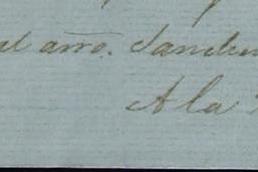 al arro. Sandu
A la